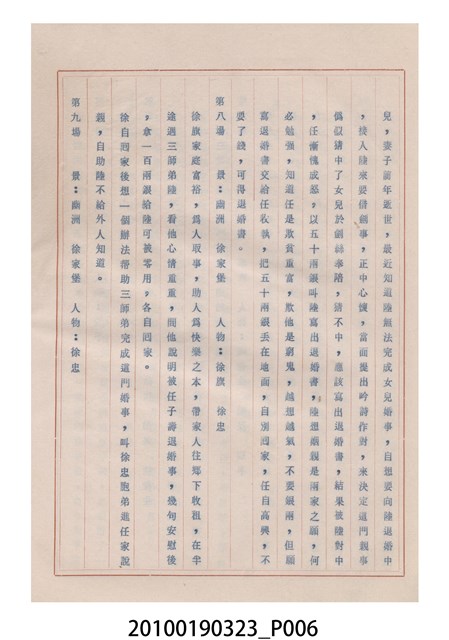 兒，妻子前年逝世，最近知道陸無法完成女兒婚事，自想要向陸退婚中
，接入陸來要借劍事，正中心懷，當面提出吟詩作對，來決定這門親事
偽似猜中了女兒於劍終奉陪，猜不中，應該寫出退婚書，結果被陸對中
，任漸愧成怒，以五十兩銀叫陸寫出退婚書，陸想姻親是兩家之願，何
必勉強，知道任是欺貧重富，欺他是窮鬼，越想越氣，不要銀兩，但願
寫退婚書交給任收執，把五十兩銀丟在地面，自別回家，任自高興，不
要了錢，可得退婚書。
第八場　景：幽洲　徐家堡　人物：徐旗　徐忠
徐旗家庭富裕，爲人取事，助人爲快樂之本，帶家人往鄉下收租，在半
途遇三師弟陸，看他心情重重，問他說明被任子壽退婚事，幾句安慰後
，拿一百兩銀給陸可被零用，各自回家。
徐自回家後想一個辦法帮助三師弟完成這門婚事，叫徐忠胞弟進任家說
親，自助陸不給外人知道。
第九場　景：幽洲　徐家堡　人物：徐忠
20100190323_P006